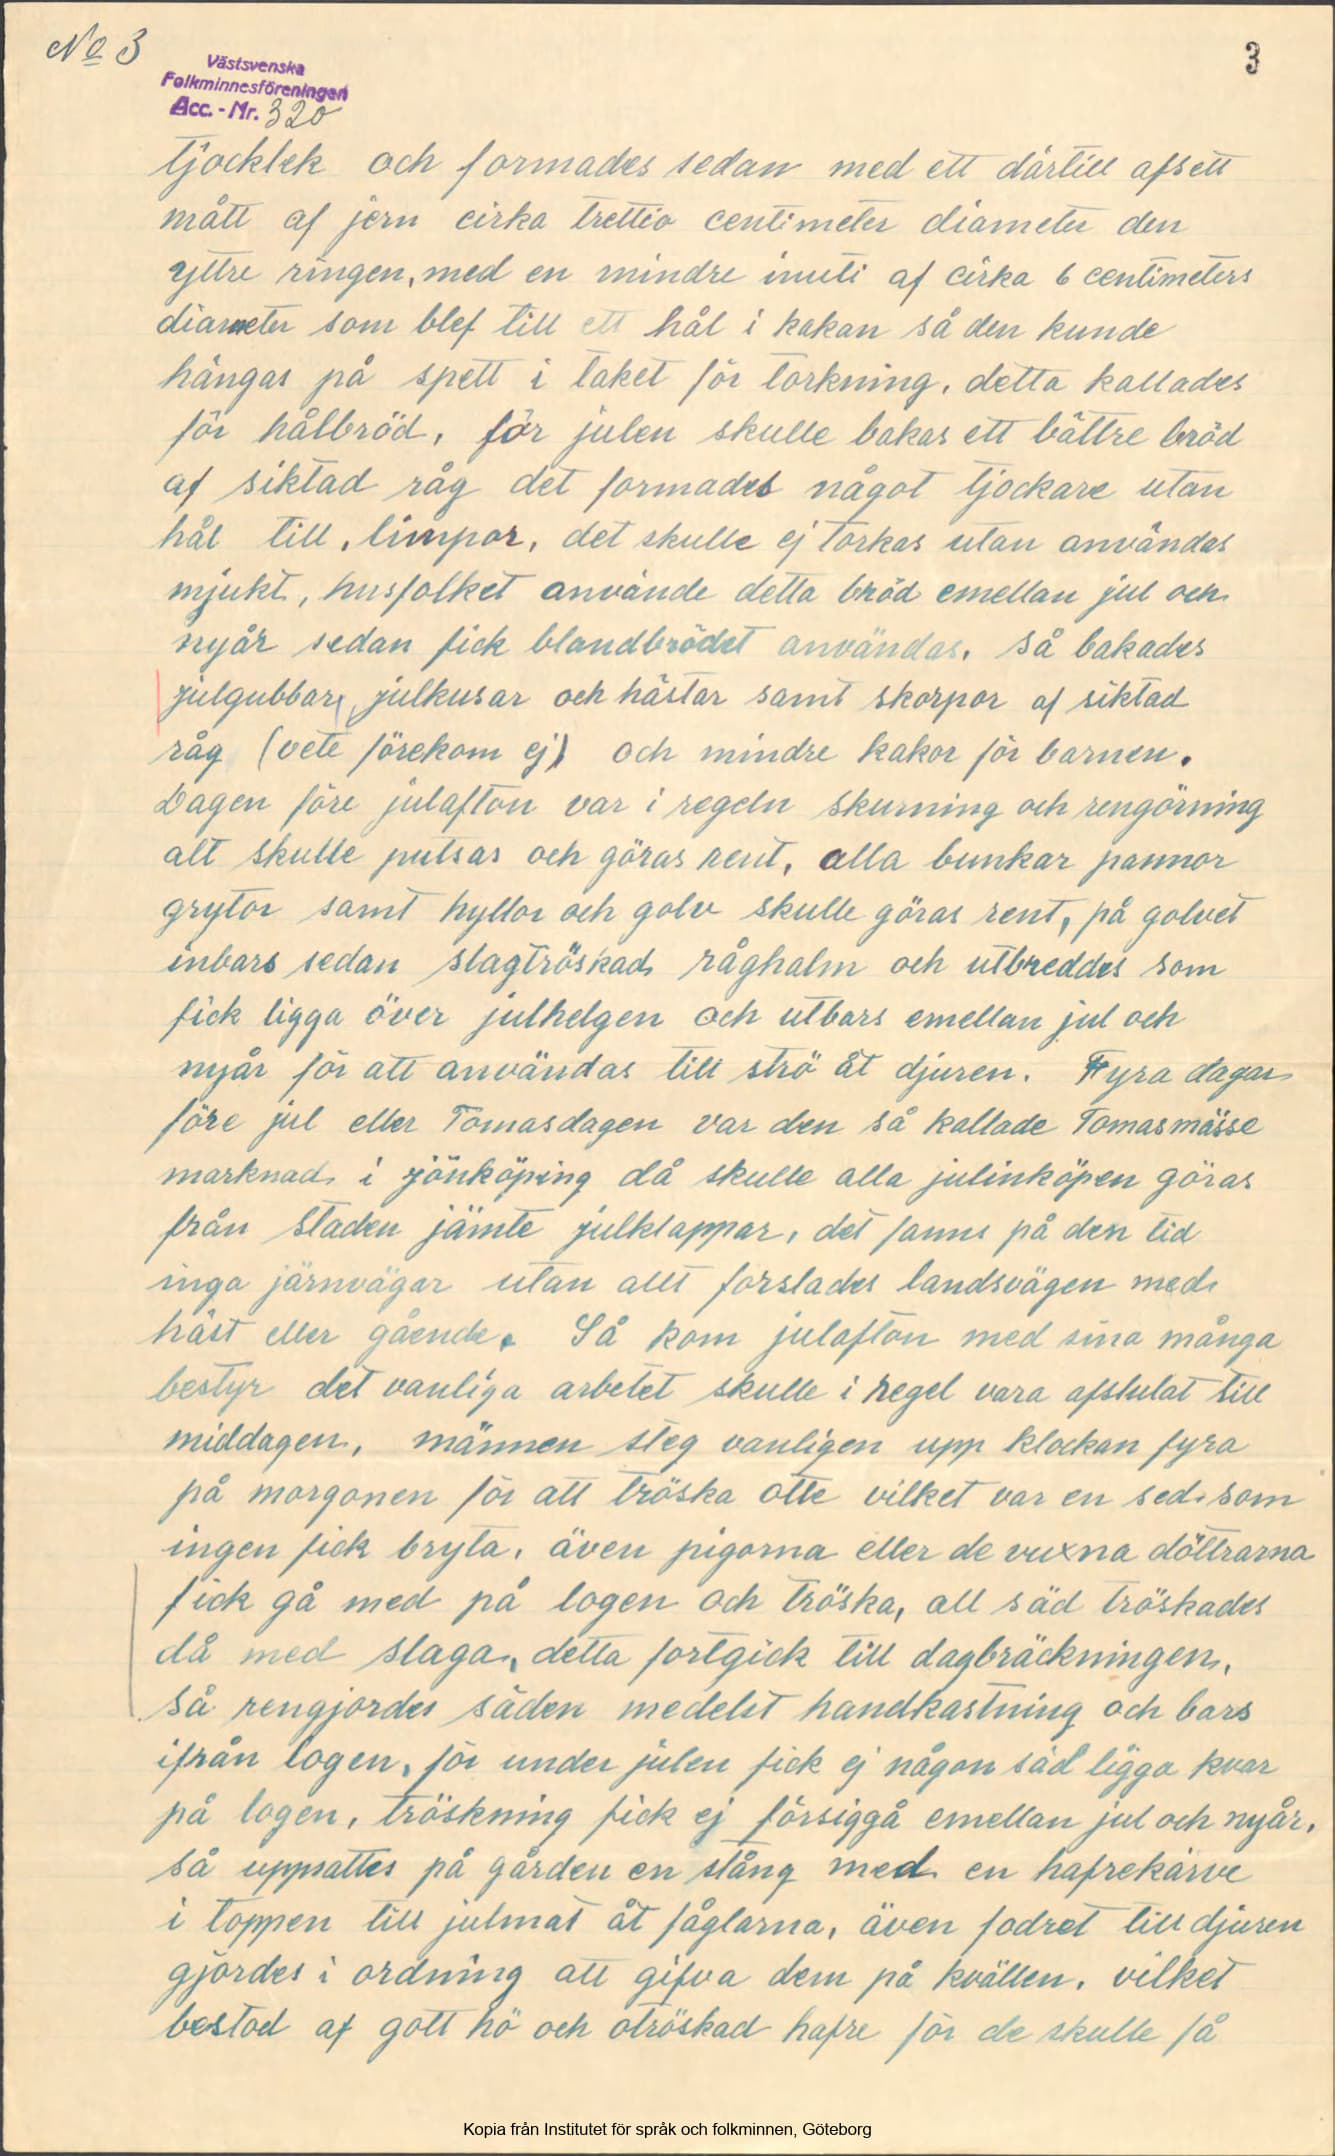 No 3
3
Västsvenska
Folkminnesföreningen
Acc. - Nr. 320
tjocklek och formades sedan med ett därtill afsett
mått af jern cirka trettio centimeter diameter den
yttre ringen, med en mindre inuti af cirka 6 centimeters
diameter som blef till ett hål i kakan så den kunde
hängas på spett i taket för torkning, detta kallades
för hålbröd, för julen skulle bakas ett bättre bröd
af siktad råg det formades något tjockare utan
hål till, limpor, det skulle ej torkas utan användas
mjukt, husfolket använde detta bröd emellan jul och
nyår sedan fick blandbrödet användas. så bakades
julgubbar, julkusar och hästar samt skorpor af siktad
råg (vete förekom ej) och mindre kakor för barnen.
Dagen före julafton var i regeln skurning och rengörning
alt skulle putsas och göras rent, alla bunkar pannor
grytor samt hyllor och golv skulle göras rent, på golvet
inbars sedan slagtröskad råghalm och utbreddes som
fick ligga över julhelgen och utbars emellan jul och
nyår för att användas till strö åt djuren. Fyra dagar
före jul eller Tomasdagen var den så kallade Tomasmässe
marknad i jönköping då skulle alla julinköpen göras
från staden jämte julklappar, det fanns på den tid
inga järnvägar utan allt forslades landsvägen med
häst eller gående. Så kom julafton med sina många
bestyr det vanliga arbetet skulle i regel vara afslutat till
middagen, männen steg vanligen upp klockan fyra
på morgonen för att tröska otte vilket var en sed som
ingen fick bryta, även pigorna eller de vuxna döttrarna
fick gå med på logen och tröska, all säd tröskades
då med slaga, detta fortgick till dagbräckningen,
så rengjordes säden medelst handkastning och bars
ifrån logen, för under julen fick ej någon säd ligga kvar
på logen, tröskning fick ej försiggå emellan jul och nyår,
så uppsattes på gården en stång med en hafrekärve
i toppen till julmat åt fåglarna, även fodret till djuren
gjordes i ordning att gifva dem på kvällen, vilket
bestod af gott hö och otröskad hafre för de skulle få
Kopia från Institutet för språk och folkminnen, Göteborg